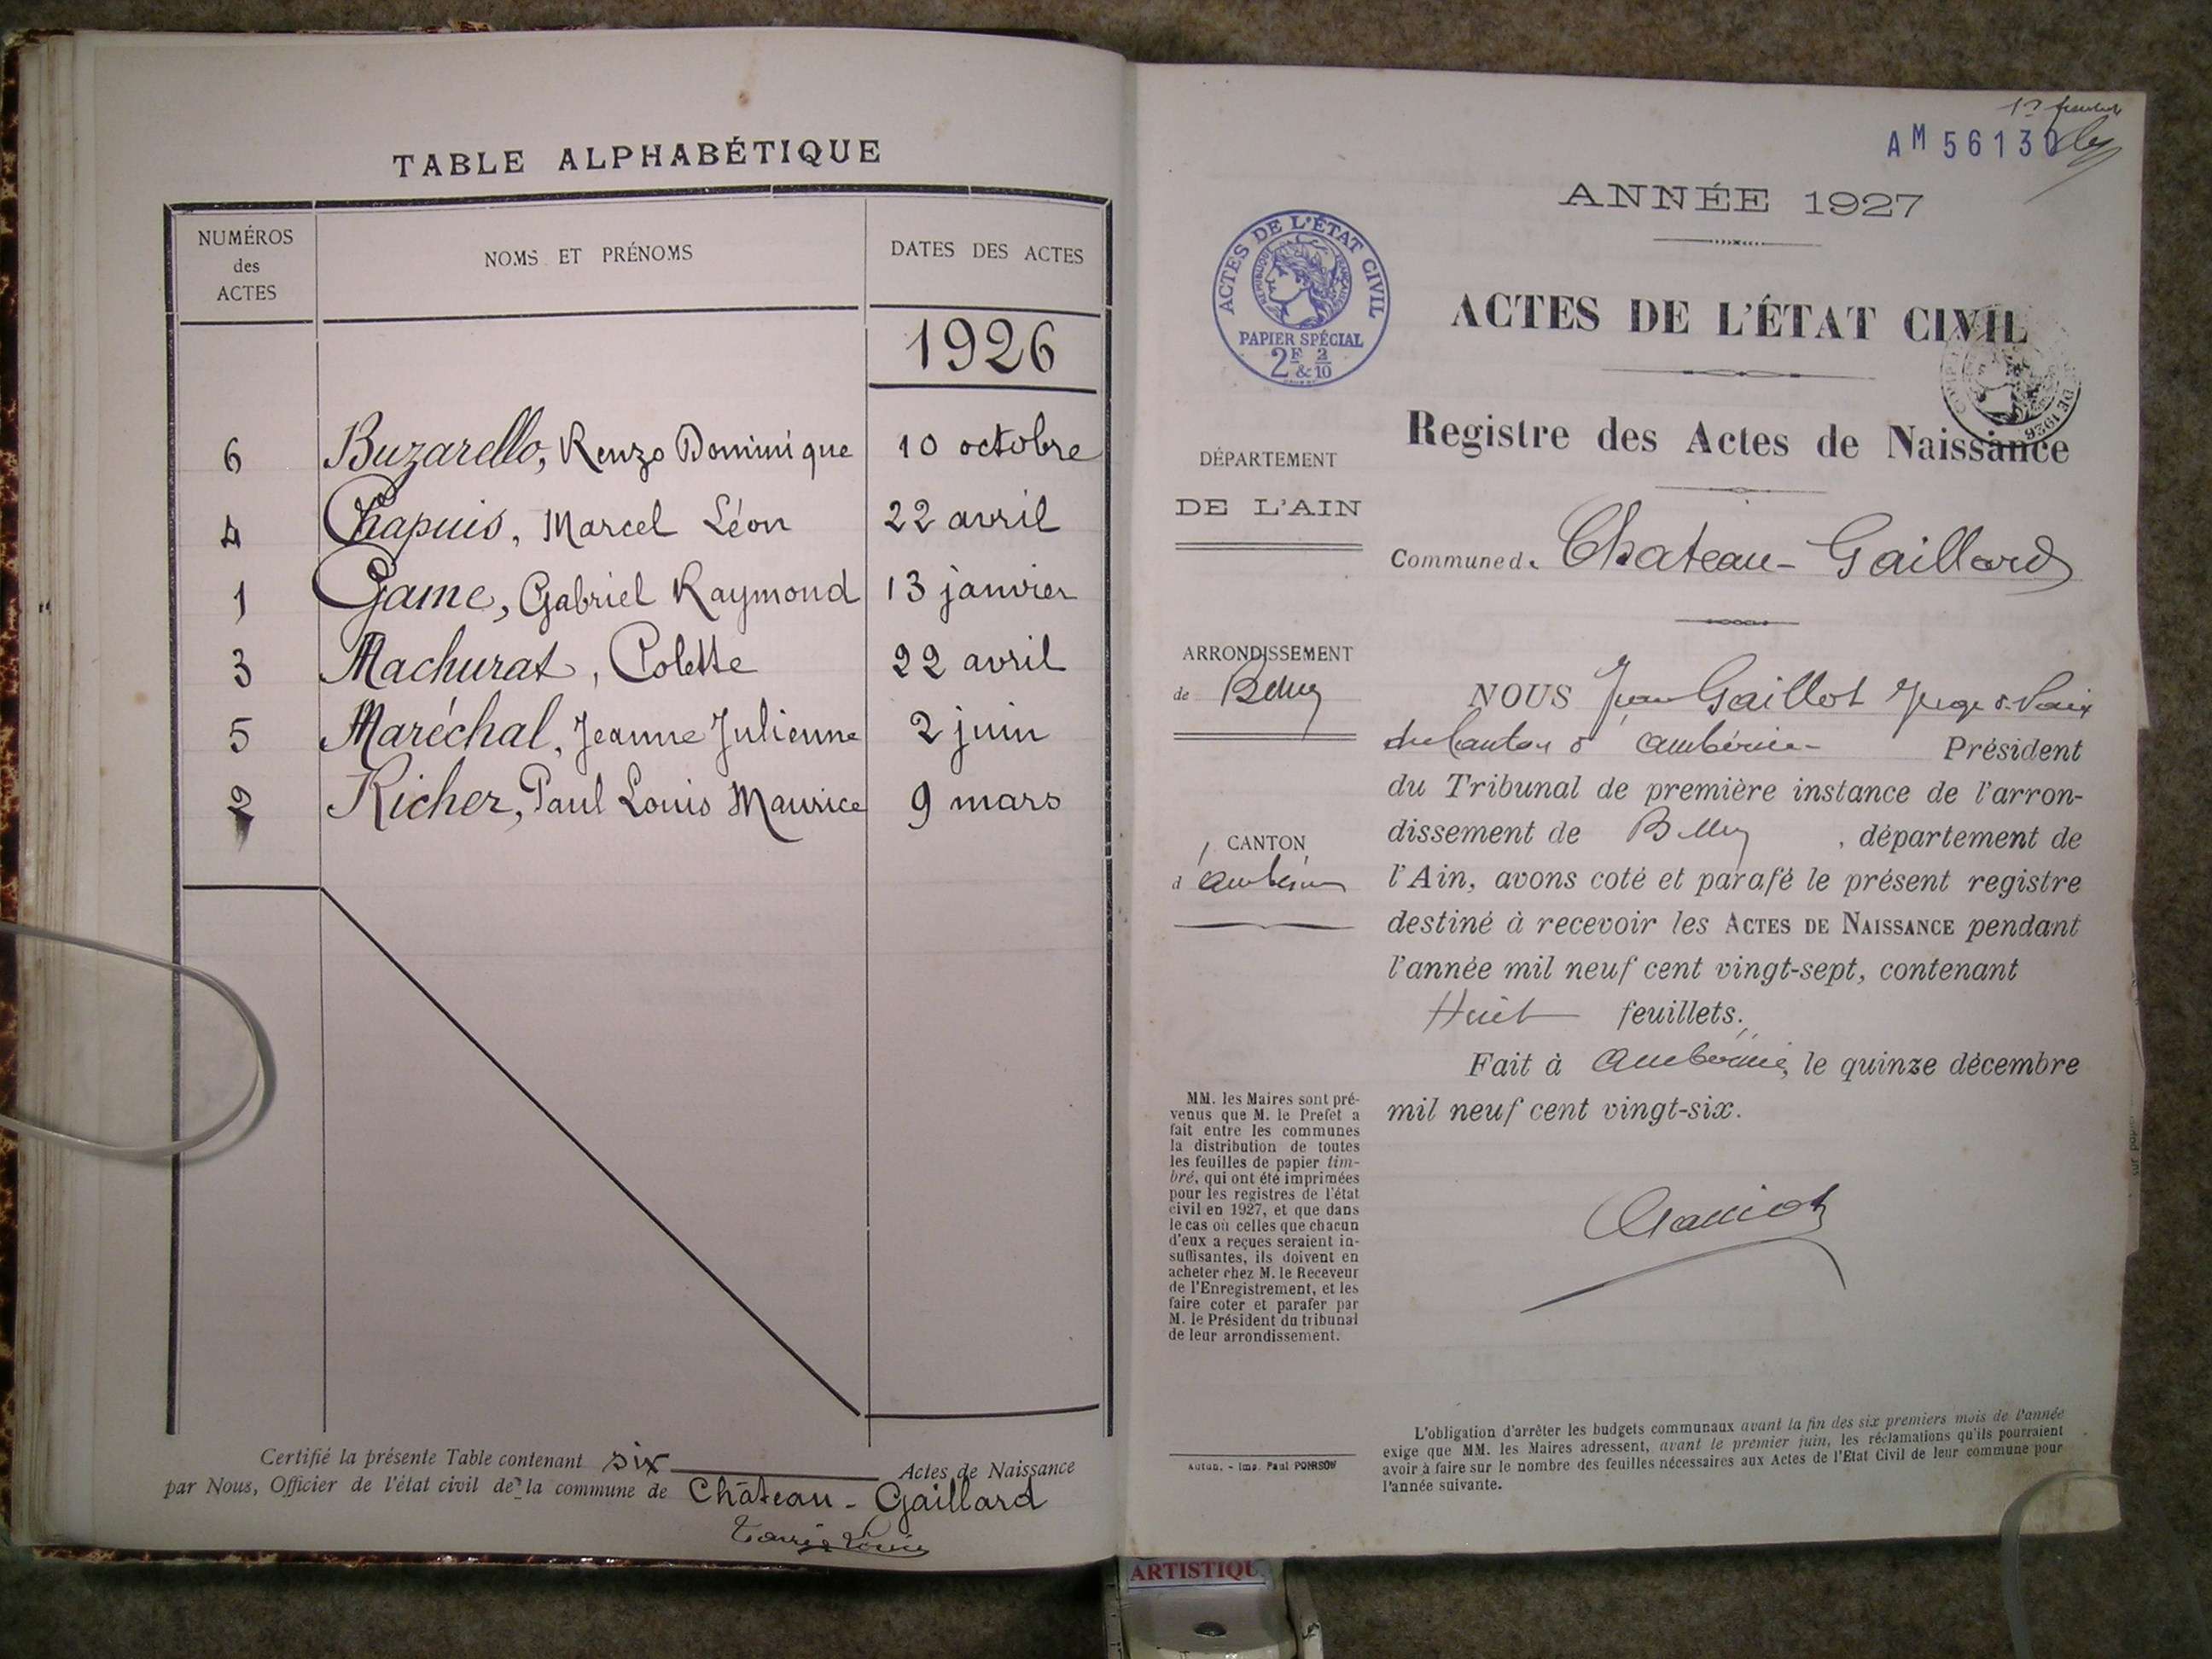 TABLE ALPHABÉTIQUE
NUMÉROS des ACTES | NOMS ET PRÉNOMS | DATES DES ACTES
1926
6 Buzarello, Renzo Dominique 10 octobre
4 Chapuis, Marcel Léon 22 avril
1 Game, Gabriel Raymond 13 janvier
3 Machurat, Colette 22 avril
5 Maréchal, Jeanne Julienne 2 juin
2 Richer, Paul Louis Maurice 9 mars
Certifié la présente Table contenant six Actes de Naissance
par Nous, Officier de l'état civil de la commune de Château-Gaillard
AM 56130
ANNÉE 1927
ACTES DE L'ÉTAT CIVIL
RÉPUBLIQUE FRANÇAISE
PAPIER SPÉCIAL
2F & 2/10
ACTES DE L'ÉTAT CIVIL
DE 1926
Registre des Actes de Naissance
DÉPARTEMENT
DE L'AIN
Commune de Chateau-Gaillard
ARRONDISSEMENT
de Belley
CANTON
d'Ambérieu
NOUS Jean Gaillot Juge de Paix
du Canton d'Ambérieu Président
du Tribunal de première instance de l'arron-
dissement de Belley, département de
l'Ain, avons coté et parafé le présent registre
destiné à recevoir les ACTES DE NAISSANCE pendant
l'année mil neuf cent vingt-sept, contenant
Huit feuillets.
Fait à Ambérieu, le quinze décembre
mil neuf cent vingt-six.
MM. les Maires sont pré-
venus que M. le Prefet a
fait entre les communes
la distribution de toutes
les feuilles de papier tim-
bré, qui ont été imprimées
pour les registres de l'état
civil en 1927, et que dans
le cas où celles que chacun
d'eux a reçues seraient in-
suffisantes, ils doivent en
acheter chez M. le Receveur
de l'Enregistrement, et les
faire coter et parafer par
M. le Président du tribunal
de leur arrondissement.
Autun. - Imp. Paul POIRSON
L'obligation d'arrêter les budgets communaux avant la fin des six premiers mois de l'année
exige que MM. les Maires adressent, avant le premier juin, les réclamations qu'ils pourraient
avoir à faire sur le nombre des feuilles nécessaires aux Actes de l'Etat Civil de leur commune pour
l'année suivante.
ARTISTIQU